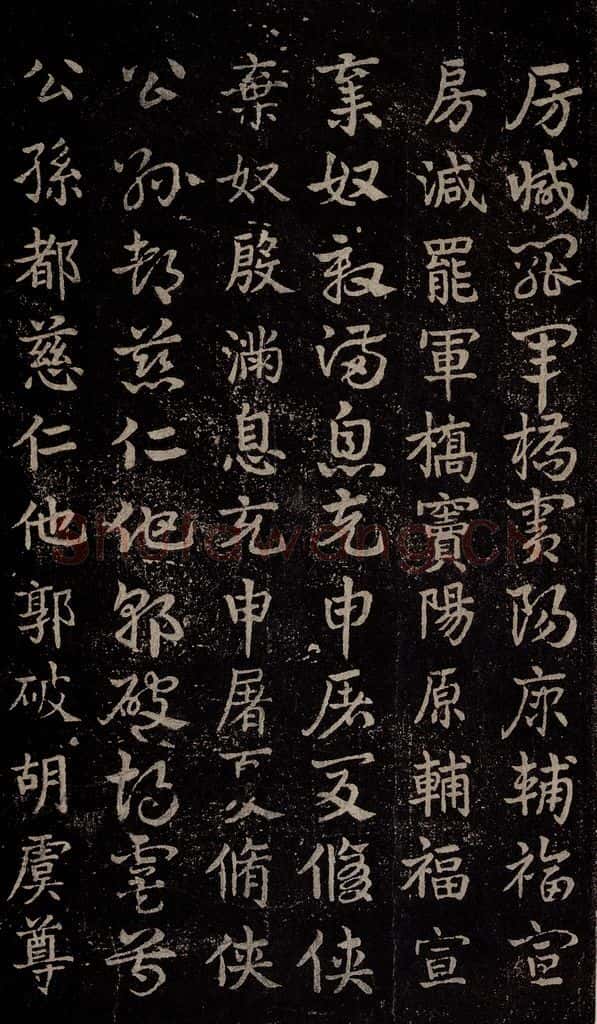 房減罷軍橋竇陽原輔福宣
房減罷軍橋竇陽原輔福宣
棄奴殷滿息充申屠夏脩俠
棄奴殷滿息充申屠夏脩俠
公孫都慈仁他郭破胡虞尊
公孫都慈仁他郭破胡虞尊
Shufawang.CN